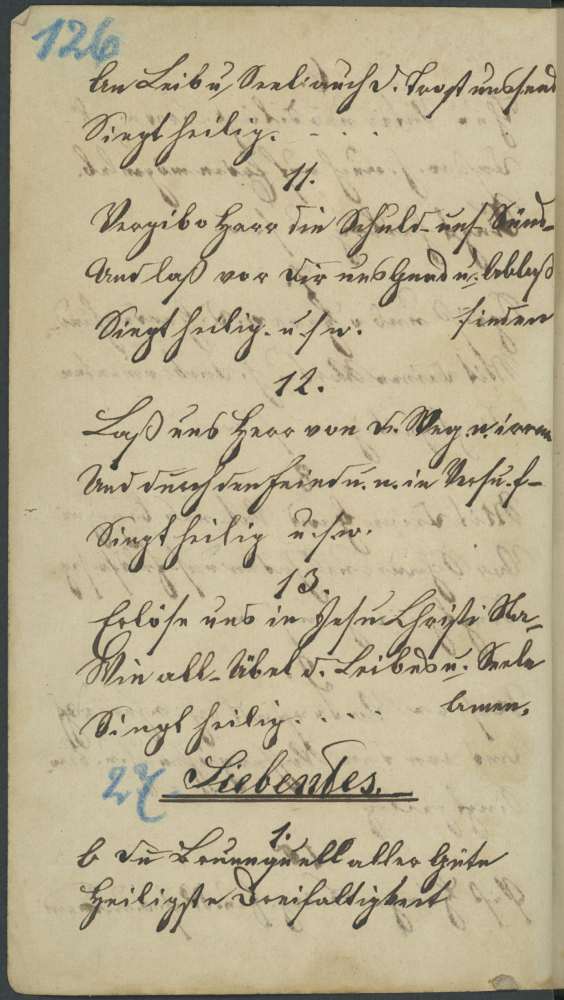 126
An Leib u. Seel auch d. Trost uns send
Singt heilig. - - .
11.
Vergib o Herr die Schuld uns. Sünd-
Und laß vor Dir uns Gnad u. Ablaß
finden
Singt heilig. u. s. w.
12.
Laß uns Herr von d. Weg n. irren
Und durch den Feind u. n. in Versu. f-
Singt heilig u. s. w.
13.
Erlöse uns in Jesu Christi Na-
Wie all- Übel d. Leibes u. Seele
Amen.
Singt heilig. . . .
27 Siebentes.
1.
O du Brunnquell aller Güte
Heiligste Dreifaltigkeit